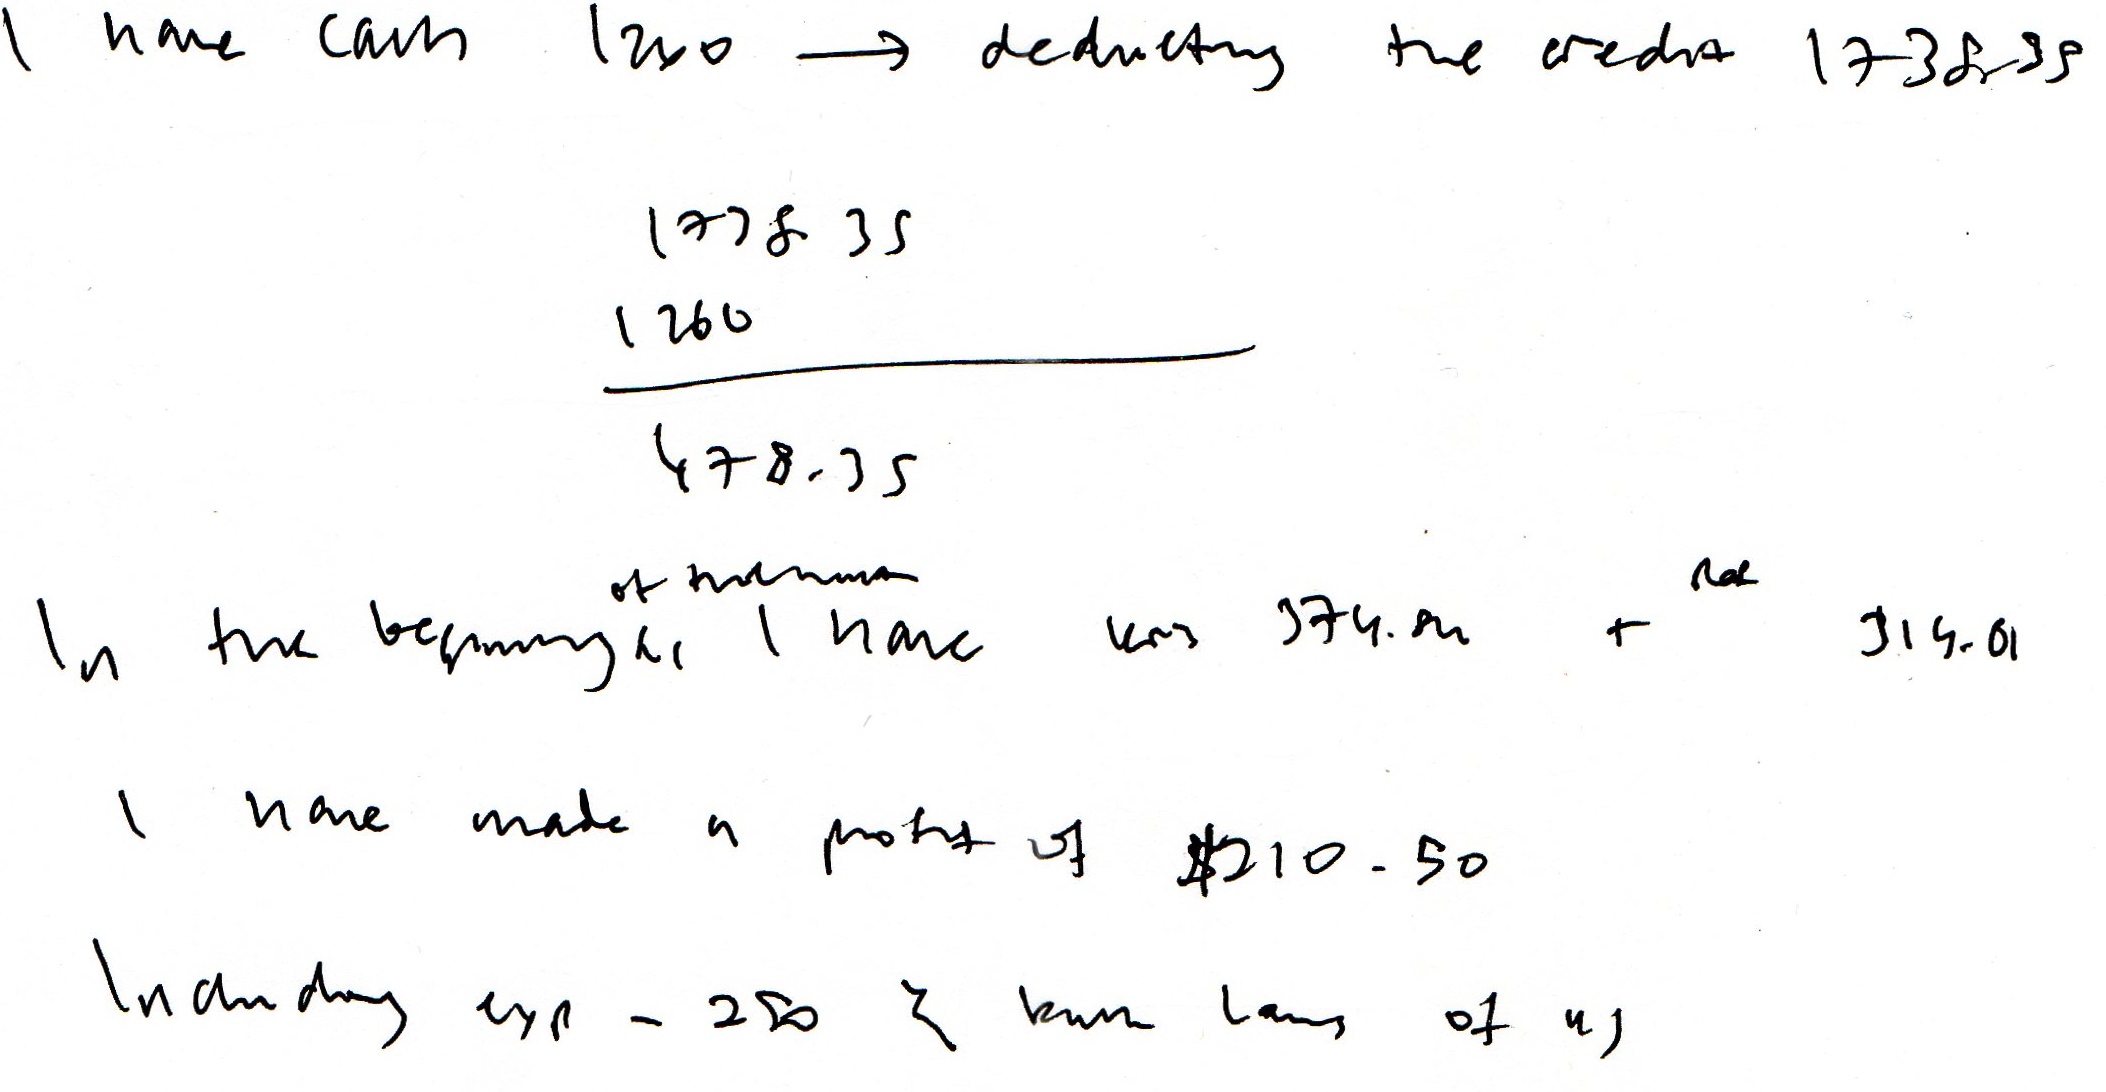 I have cash 1260 → deducting the credit 1738.35
1738.35
1260
478.35
In the beginning of I have less 374.84 + 314.01
I have made a profit of $210.50
Including exp - 250 & of